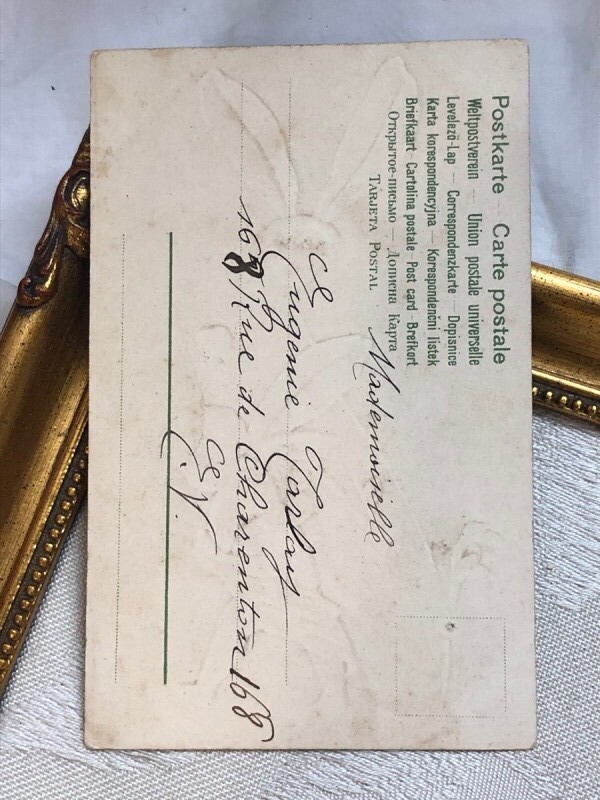 Postkarte — Carte postale
Weltpostverein — Union postale universelle
Levelező-Lap — Correspondenzkarte — Dopisnice
Karta korespondencyjna — Korespondenční lístek
Briefkaart - Cartolina postale - Post card - Brefkort
Открытое-письмо — Дописна Карта
TARJETA POSTAL
Mademoiselle
Eugenie Tarlay
168 Rue de Charenton 168
E.V.